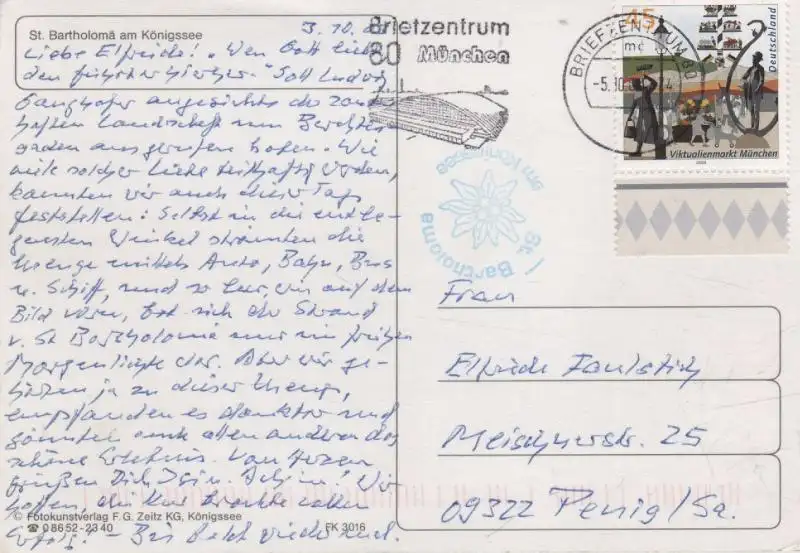 St. Bartholomä am Königssee
3. 10.
Liebe Elfriede! "Wen Gott lieb
den führt er hierher." Soll Ludwig
Ganghofer angesichts der
haften Landschaft um Berchtes-
gaden ausgerufen haben. Wie
viele solcher Liebe teilhaftig werden,
konnten wir auch dieser Tage
feststellen: Selbst in die entle-
gensten Winkel strömten die
Menge mittels Auto, Bahn, Bus
u. Schiff, und so leer, wie auf dem
Bild vorn, bot sich der Strand
v. St Bartholomä nur im frühen
Morgenlichte dar. Aber wir ge-
hörten ja zu dieser Menge,
empfanden es dankbar und
gönnten auch allen anderen das
schöne Erlebnis. Von Herzen
grüßen Dich Wir
hoffen, die Kur brachte vollen
Erfolg! - Bis bald wieder mal.
© Fotokunstverlag F.G. Zeitz KG, Königssee
☎ 0 86 52 - 23 40
FK 3016
Briefzentrum
80 München
BRIEFZENTRUM 80
-5.10.
45
Deutschland
Viktualienmarkt München
St. Bartholomä
am Königssee
Frau
Elfriede Faulstich
Meischnerstr. 25
09322 Penig/Sa.